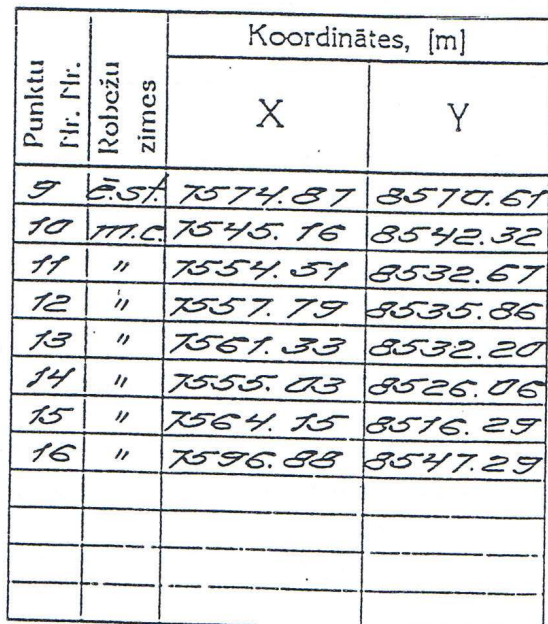 Punktu Nr. Nr. Robežu zīmes Koordinātes, [m]
X Y
9 ē.st. 7574.87 8570.61
10 m.c. 7545.16 8542.32
11 " 7554.51 8532.67
12 " 7557.79 8535.86
13 " 7561.33 8532.20
14 " 7555.03 8526.06
15 " 7564.15 8516.29
16 " 7596.88 8547.29